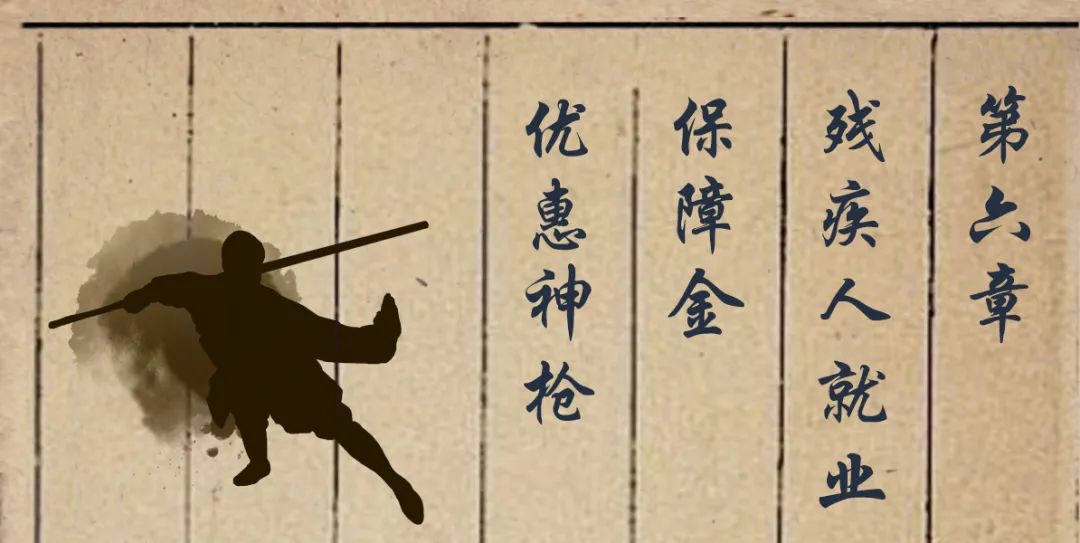 第六章
残疾人就业
保障金
优惠神枪